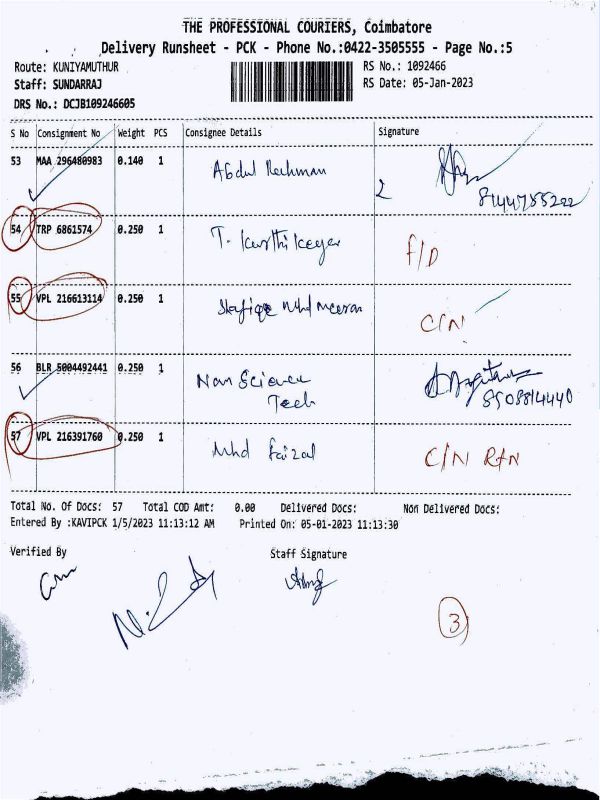 THE PROFESSIONAL COURIERS, Coimbatore
Delivery Runsheet - PCK - Phone No.:0422-3505555 - Page No.:5
Route: KUNIYAMUTHUR RS No.: 1092466
Staff: SUNDARRAJ RS Date: 05-Jan-2023
DRS No.: DCJB109246605
S No Consignment No Weight PCS Consignee Details Signature
53 MAA 296480983 0.140 1 Abdul Rechman
8144785222
54 TRP 6861574 0.250 1 T. Karthikeyer F/D
55 VPL 216613114 0.250 1 Mhd Meeran C/N
56 BLR 5004492441 0.250 1 Non Science
Tech 8508814440
57 VPL 216391760 0.250 1 Mhd Faizal C/N RTN
Total No. Of Docs: 57 Total COD Amt: 0.00 Delivered Docs: Non Delivered Docs:
Entered By :KAVIPCK 1/5/2023 11:13:12 AM Printed On: 05-01-2023 11:13:30
Verified By Staff Signature
3